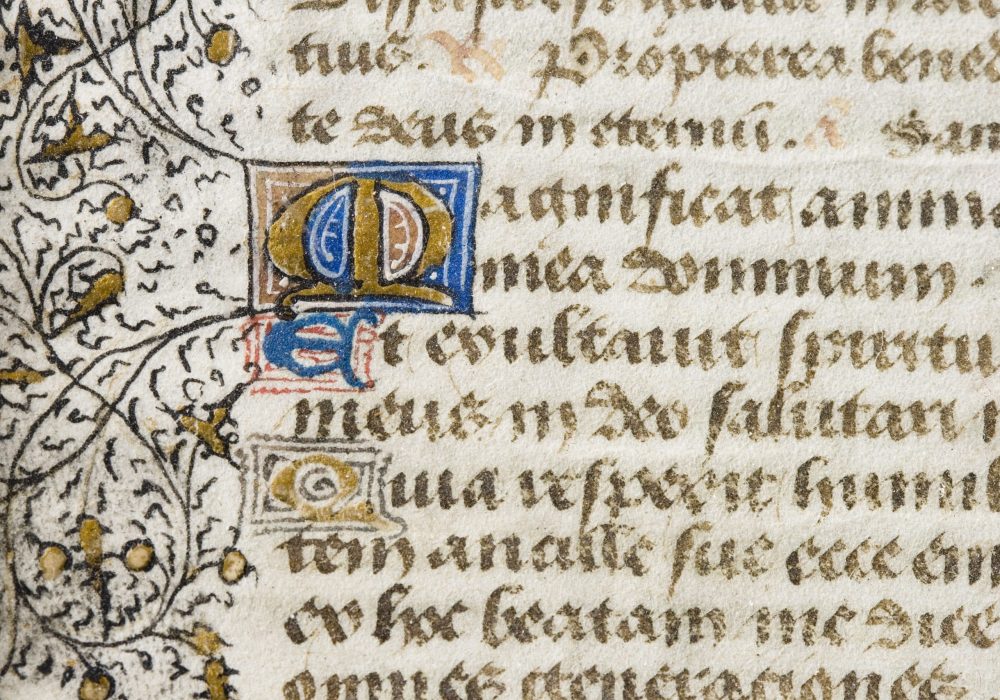 Diffusa est gratia in la
tuis. Propterea bened
te deus in eternū. a San
Magnificat anima
mea dominum .
Et exultauit spiritu
meus in deo salutari
Quia respexit humil
tem ancille sue ecce eni
ex hoc beatam me dice
omnes generaciones